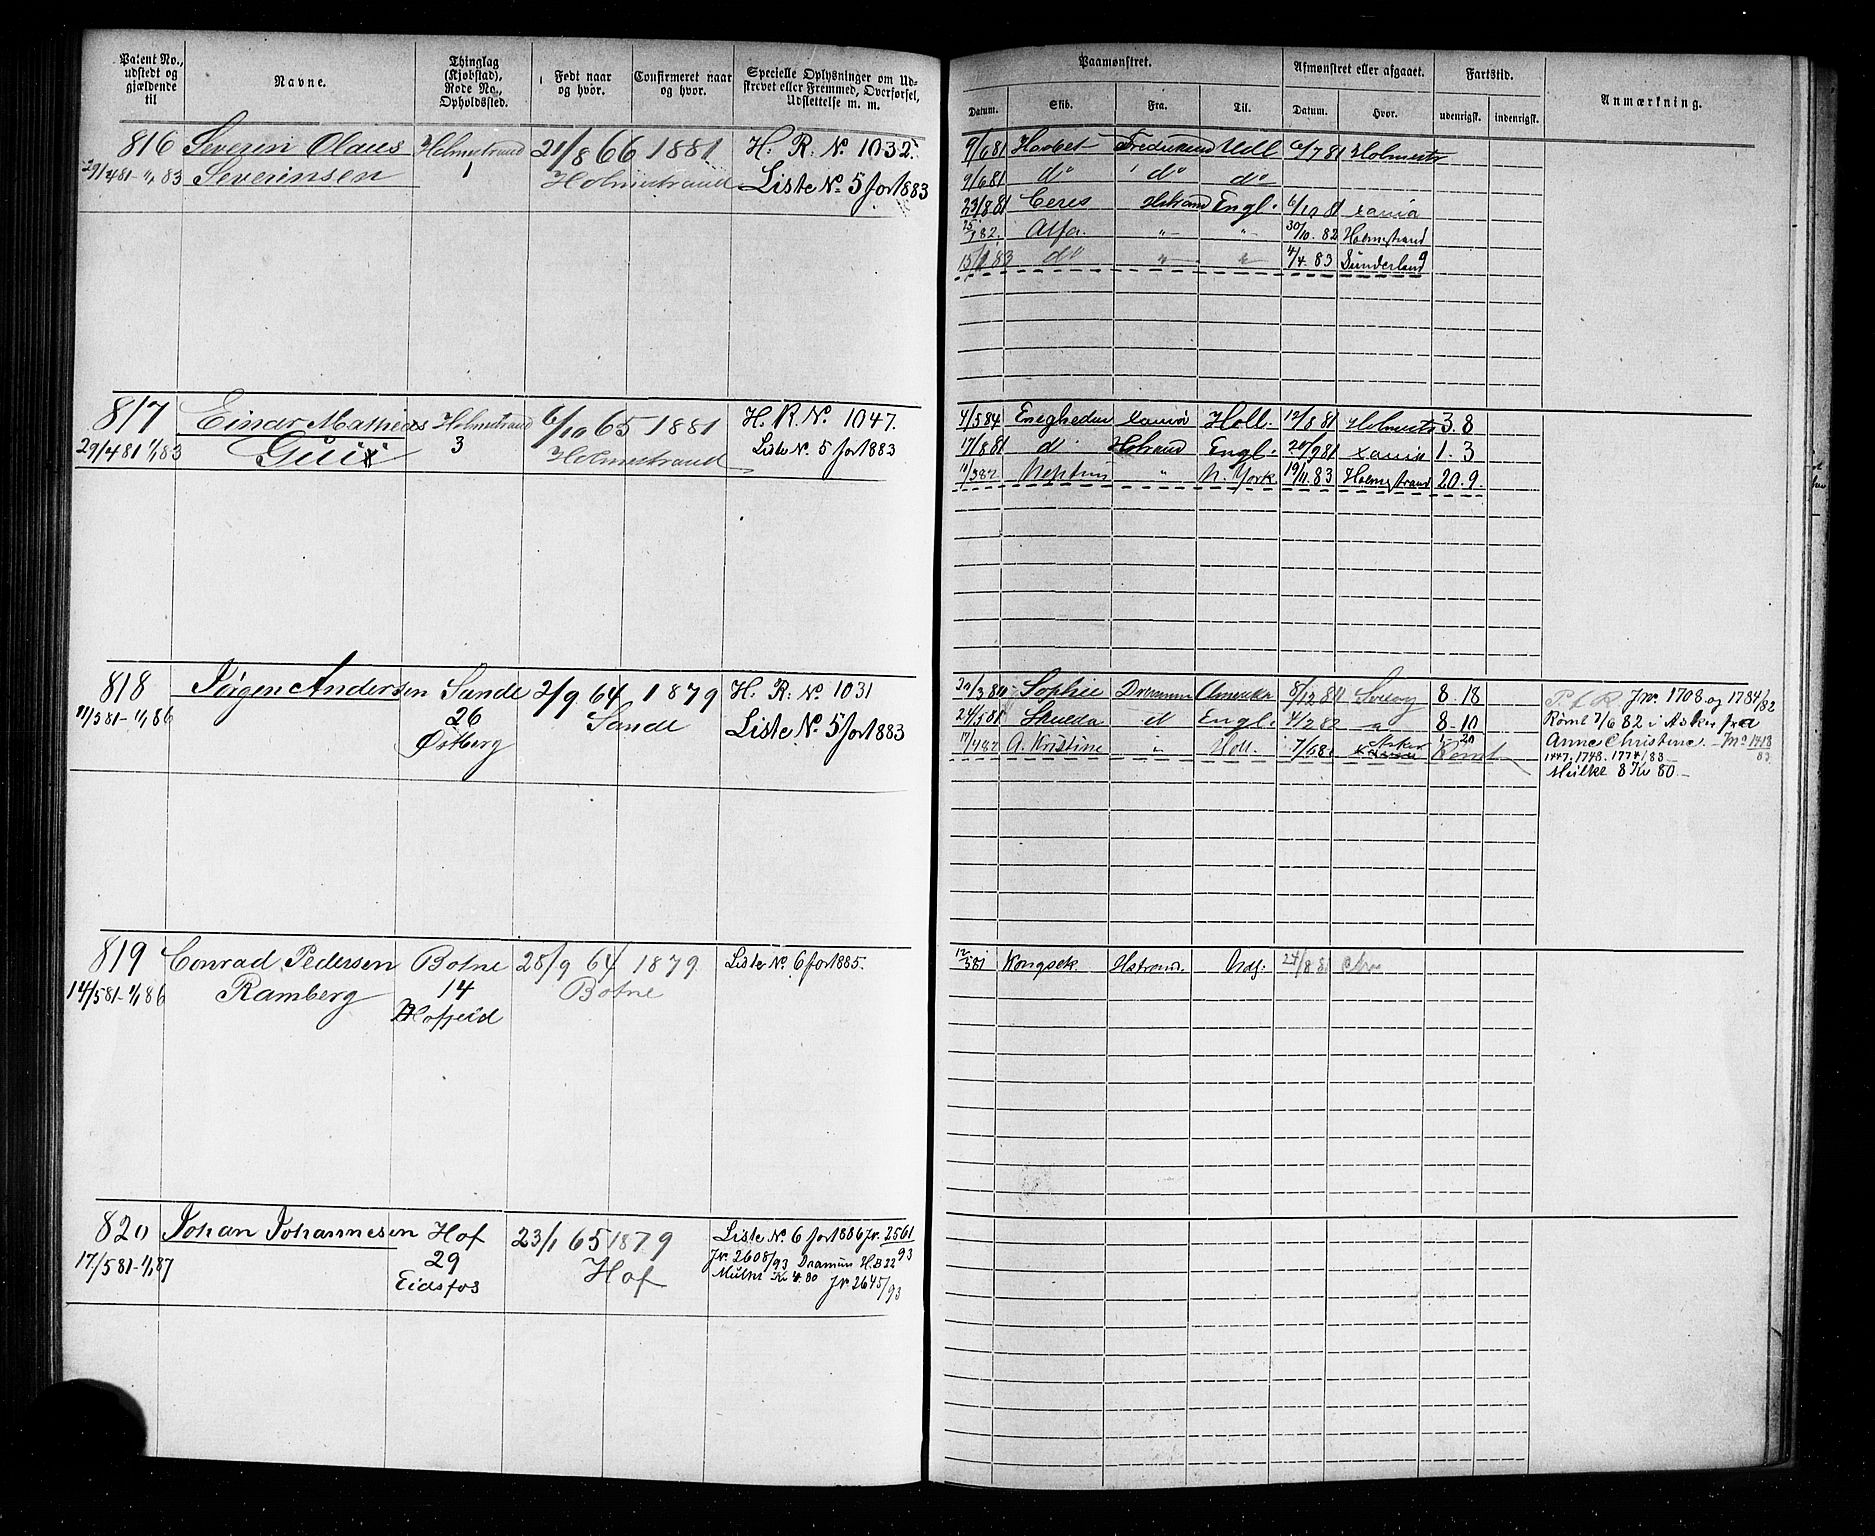 Patent No., udstedt og gjældende til
Navne.
Thinglag (Kjøbstad), Rode No., Opholdssted.
Født naar og hvor.
Confirmeret naar og hvor.
Specielle Oplysninger om Udskrevet eller Fremmed, Overførsel, Udslettelse m. m.
Paamønstret.
Afmønstret eller afgaaet.
Fartstid.
Anmærkning.
Datum. Skib. Fra. Til. Datum. Hvor. udenrigsk. indenrigsk.
816 Severin Olaus Holmestrand 21/8 66 1881 H. R. No. 1032.
29/4 81 - 1/1 83 Severinsen 1 Holmestrand Liste No. 5 for 1883
9/6 81 Haabet Udl 6/7 81 Holmestr
9/6 81 do do do
23/8 81 Ceres Engl. 6/10 81 Xania
82. Alfa. -"- -"- 30/10. 82 Holmestrand
15/1 83 do " " 4/4. 83 Sunderland
817 Einar Mathias Holmestrand 6/10 65 1881 H. R. No. 1047.
29/4 81 1/1 83 3 Holmestrand Liste No. 5 for 1883
Enigheden Xania Holl. 12/8 81 Holmestr 3. 8
17/8 81 d Engl. Xania 1. 3
Neptun " N. York 19/11. 83 Holmestrand 20. 9.
818 Jørgen Andersen Sande 2/9 64 1879 H. R. No. 1031
11/5 81 - 1/1 86 26 Sande Liste No. 5 for 1883
Østberg
Sophie Drammen Amerika 8/12 80 8. 18 Jnr. 1708 og 1784/82
24/5 81 Skulda d Engl. 4/2 82 8. 10 Rømt 7/6 82 i Asker fra
17/4 82 A. Kristine Holl. 7/6 82 Asker Rømt Anne Christine. - Jno 1418/83
1447. 1748. 1774/83 -
Mulkt 8 Kr 80 -
819 Conrad Pedersen Botne 28/9 64 1879 Liste No. 6 for 1885.
14/5 81 - 1/1 86 Ramberg 14 Botne
12/5 81 Kongsek. Hstrand. 24/8 81
820 Johan Johannesen Hof 23/1 65 1879 Liste No. 6 for 1886 Jr. 2561/93
17/5 81 - 1/1 87 29 Hof Jr. 2608/93 Drammen H.B 22
Eidsfos Mulkt Kr 4. 80 Jr 2645/93